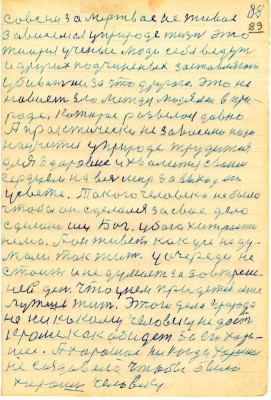 88
89
совсем за мертвое не живое
зависимся у природе жить это
такие ученые люди себя ведут
и других подчиненых заставляют
убивать ни за что другого. Это не
между людьми в при-
роде, которая развилось давно
А практически не завоевано надо
научится у природе трудится
для здоровие и хвалится своим
сердцем на весь мир за выход их
у свете. Такого человека не было
чтобы он сделал за свое дело
сделано им Бог. у бога хитрости
нема. Он живет как усе не ду-
мали так жить. у очереди не
стоить и не думает за завтреш-
ней ден. что у нем прийдется еще
лутше жит. Этого дела природа
не ни какому человеку не даст
кроме как обидет за его хоро-
шее. А хорошое никогда
не создавала чтобы было
хорошо человеку